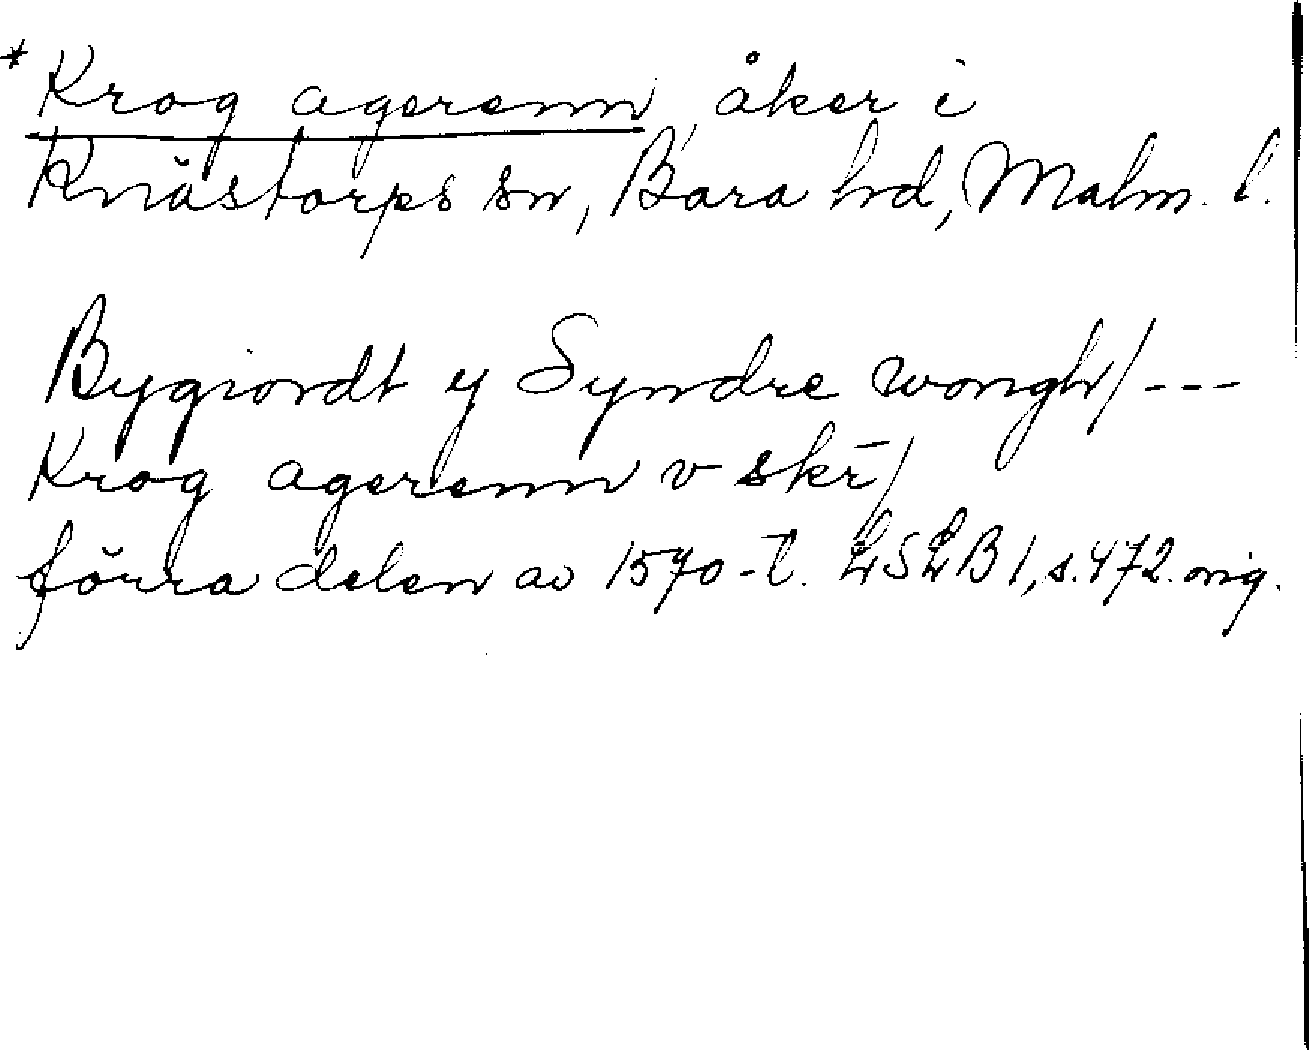 * Krog agerenn, åker i
Knästorps sn, Bara hd, Malm. l.
Bygiordt y Syndre wongh/ ---
Krog agerenn v skr̄/
förra delen av 1570-t. LSLB 1, s. 472. orig.